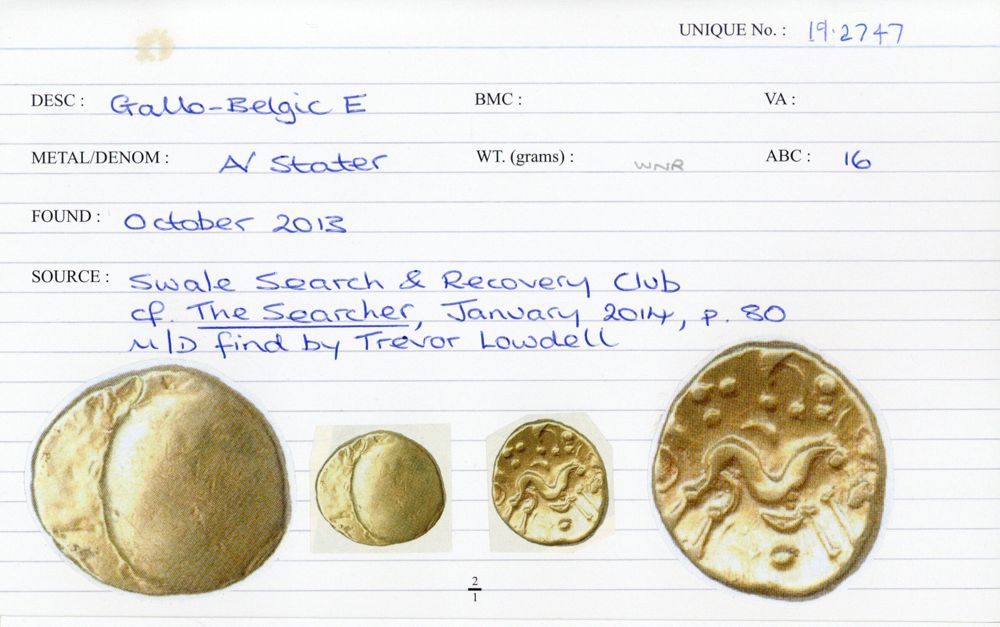 UNIQUE No. : 19.2747
DESC : Gallo-Belgic E BMC : VA :
METAL/DENOM : A/ Stater WT. (grams) : WNR ABC : 16
FOUND : October 2013
SOURCE : Swale Search & Recovery Club
cf. The Searcher, January 2014, p. 80
M/D find by Trevor Lowdell
2
1